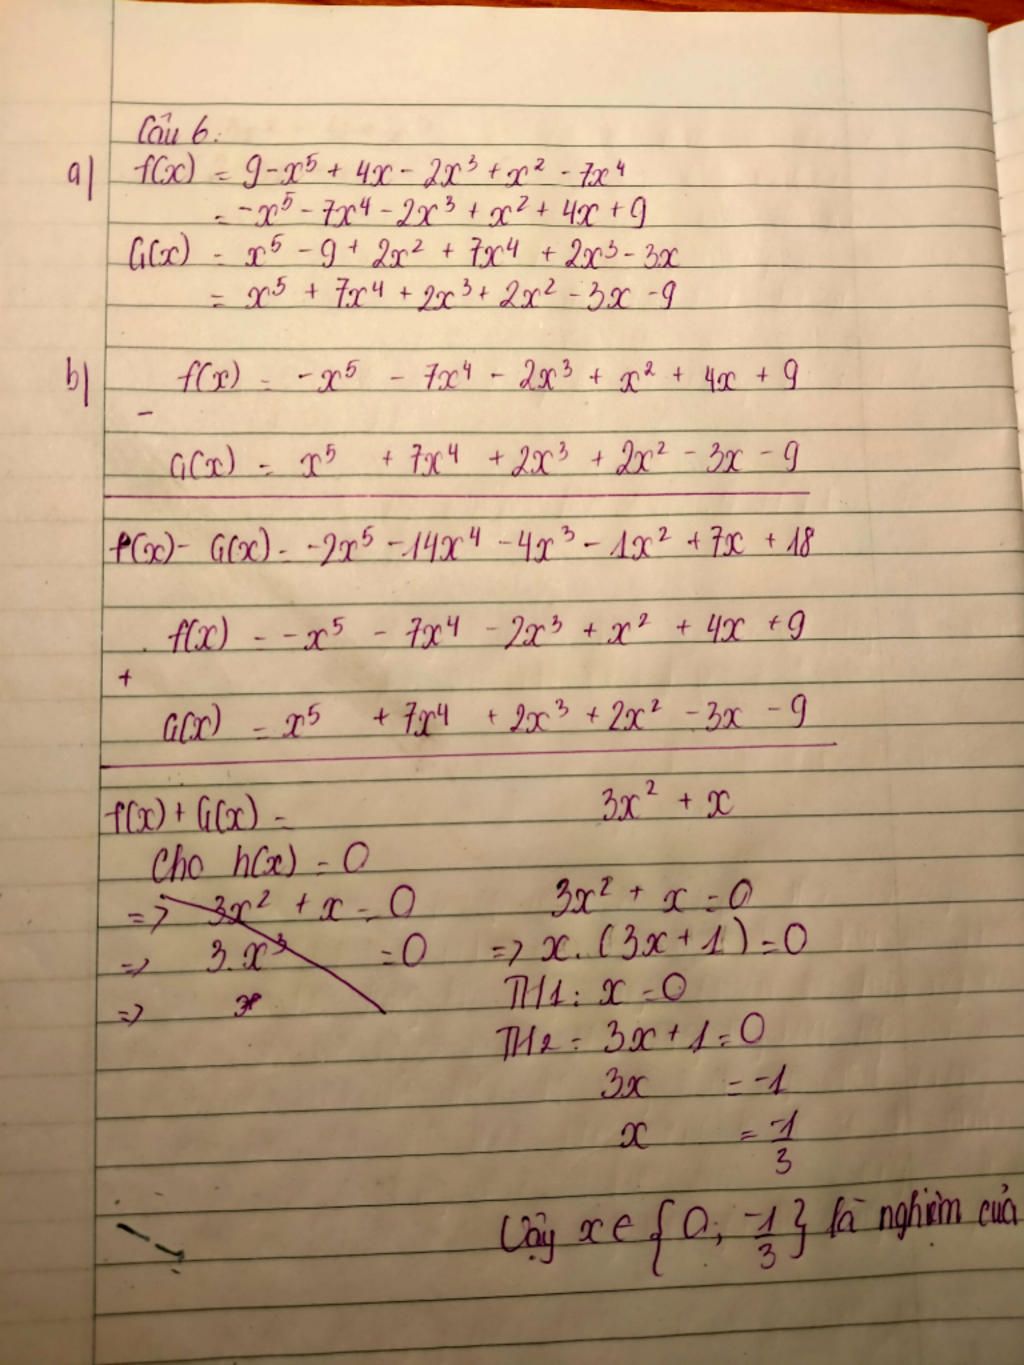 Câu 6:
a) f(x) = 9 - x⁵ + 4x - 2x³ + x² - 7x⁴
= -x⁵ - 7x⁴ - 2x³ + x² + 4x + 9
G(x) = x⁵ - 9 + 2x² + 7x⁴ + 2x³ - 3x
= x⁵ + 7x⁴ + 2x³ + 2x² - 3x - 9
b) f(x) = -x⁵ - 7x⁴ - 2x³ + x² + 4x + 9
-
G(x) = x⁵ + 7x⁴ + 2x³ + 2x² - 3x - 9
f(x) - G(x) = -2x⁵ - 14x⁴ - 4x³ - 1x² + 7x + 18
f(x) = -x⁵ - 7x⁴ - 2x³ + x² + 4x + 9
+
G(x) = x⁵ + 7x⁴ + 2x³ + 2x² - 3x - 9
f(x) + G(x) = 3x² + x
Cho h(x) = 0
=> 3x² + x = 0
=> 3.x³ = 0
=>
3x² + x = 0
=> x.(3x + 1) = 0
TH1: x = 0
TH2: 3x + 1 = 0
3x = -1
x = -1/3
Vậy x ∈ {0; -1/3} là nghiệm của